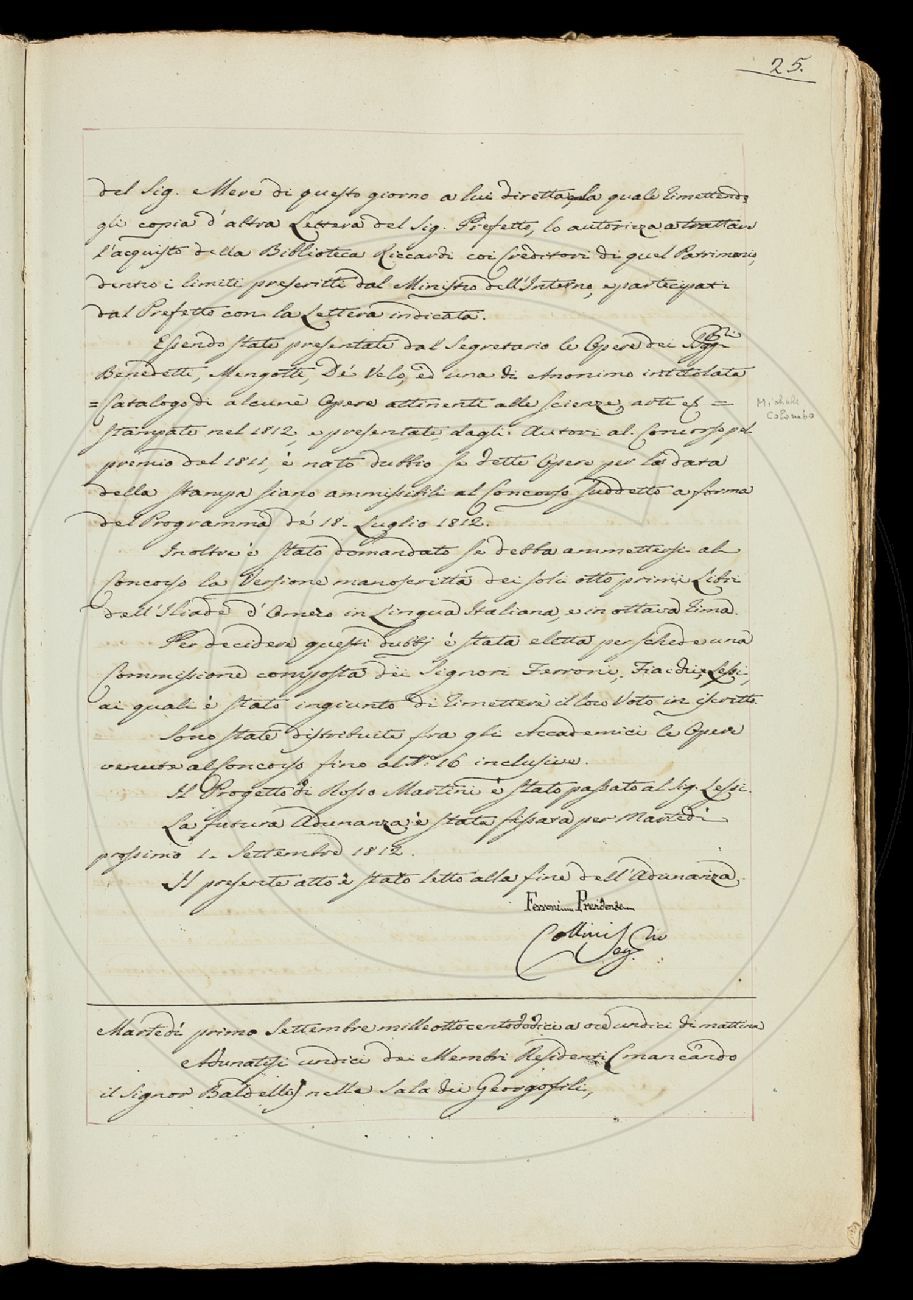 25.
del Sig. Mere di questo giorno a lui diretta, la quale rimettendo
gli copia d'altra Lettera del Sig. Prefetto, lo autorizza a trattare
l'acquisto della Biblioteca Riccardi coi Creditori di quel Patrimonio,
dentro i limiti prescritti dal Ministro dell'Interno, e partecipati
dal Prefetto con la Lettera indicata.
Essendo state presentate dal Segretario le Opere dei
Benedetti, Mengotti, De' Velo, ed una di Anonimo intitolata
= Catalogo di alcune Opere attinenti alle scienze, arti &c =
Michele
Colombo
stampate nel 1812, e presentate dagli Autori al Concorso pel
premio del 1811, è nato dubbio se dette Opere per la data
della stampa siano ammissibili al Concorso suddetto a forma
del Programma de' 18. Luglio 1812.
Inoltre è stato domandato se debba ammettersi al
Concorso la Versione manoscritta dei soli otto primi Libri
dell'Iliade d'Omero in Lingua Italiana, e in ottava rima.
Per decidere questi dubbj è stata eletta per schede una
Commissione composta dei Signori Ferroni, Fiacchi, e Lessi,
ai quali è stato ingiunto di rimettere il loro Voto in iscritto.
Sono state distribuite fra gli Accademici le Opere
venute al Concorso fino al N.° 16 inclusive.
Il Progetto di Rosso Martini è stato passato al Sig. Lessi.
La futura Adunanza è stata fissata per Martedì
prossimo 1. Settembre 1812.
Il presente atto è stato letto alla fine dell'Adunanza.
Ferroni Presidente
Collini Seg.rio
Martedì primo Settembre milleottocentododici a ore undici di mattina
Adunatisi undici dei Membri Residenti (mancando
il Signor Baldelli) nella Sala dei Georgofili,